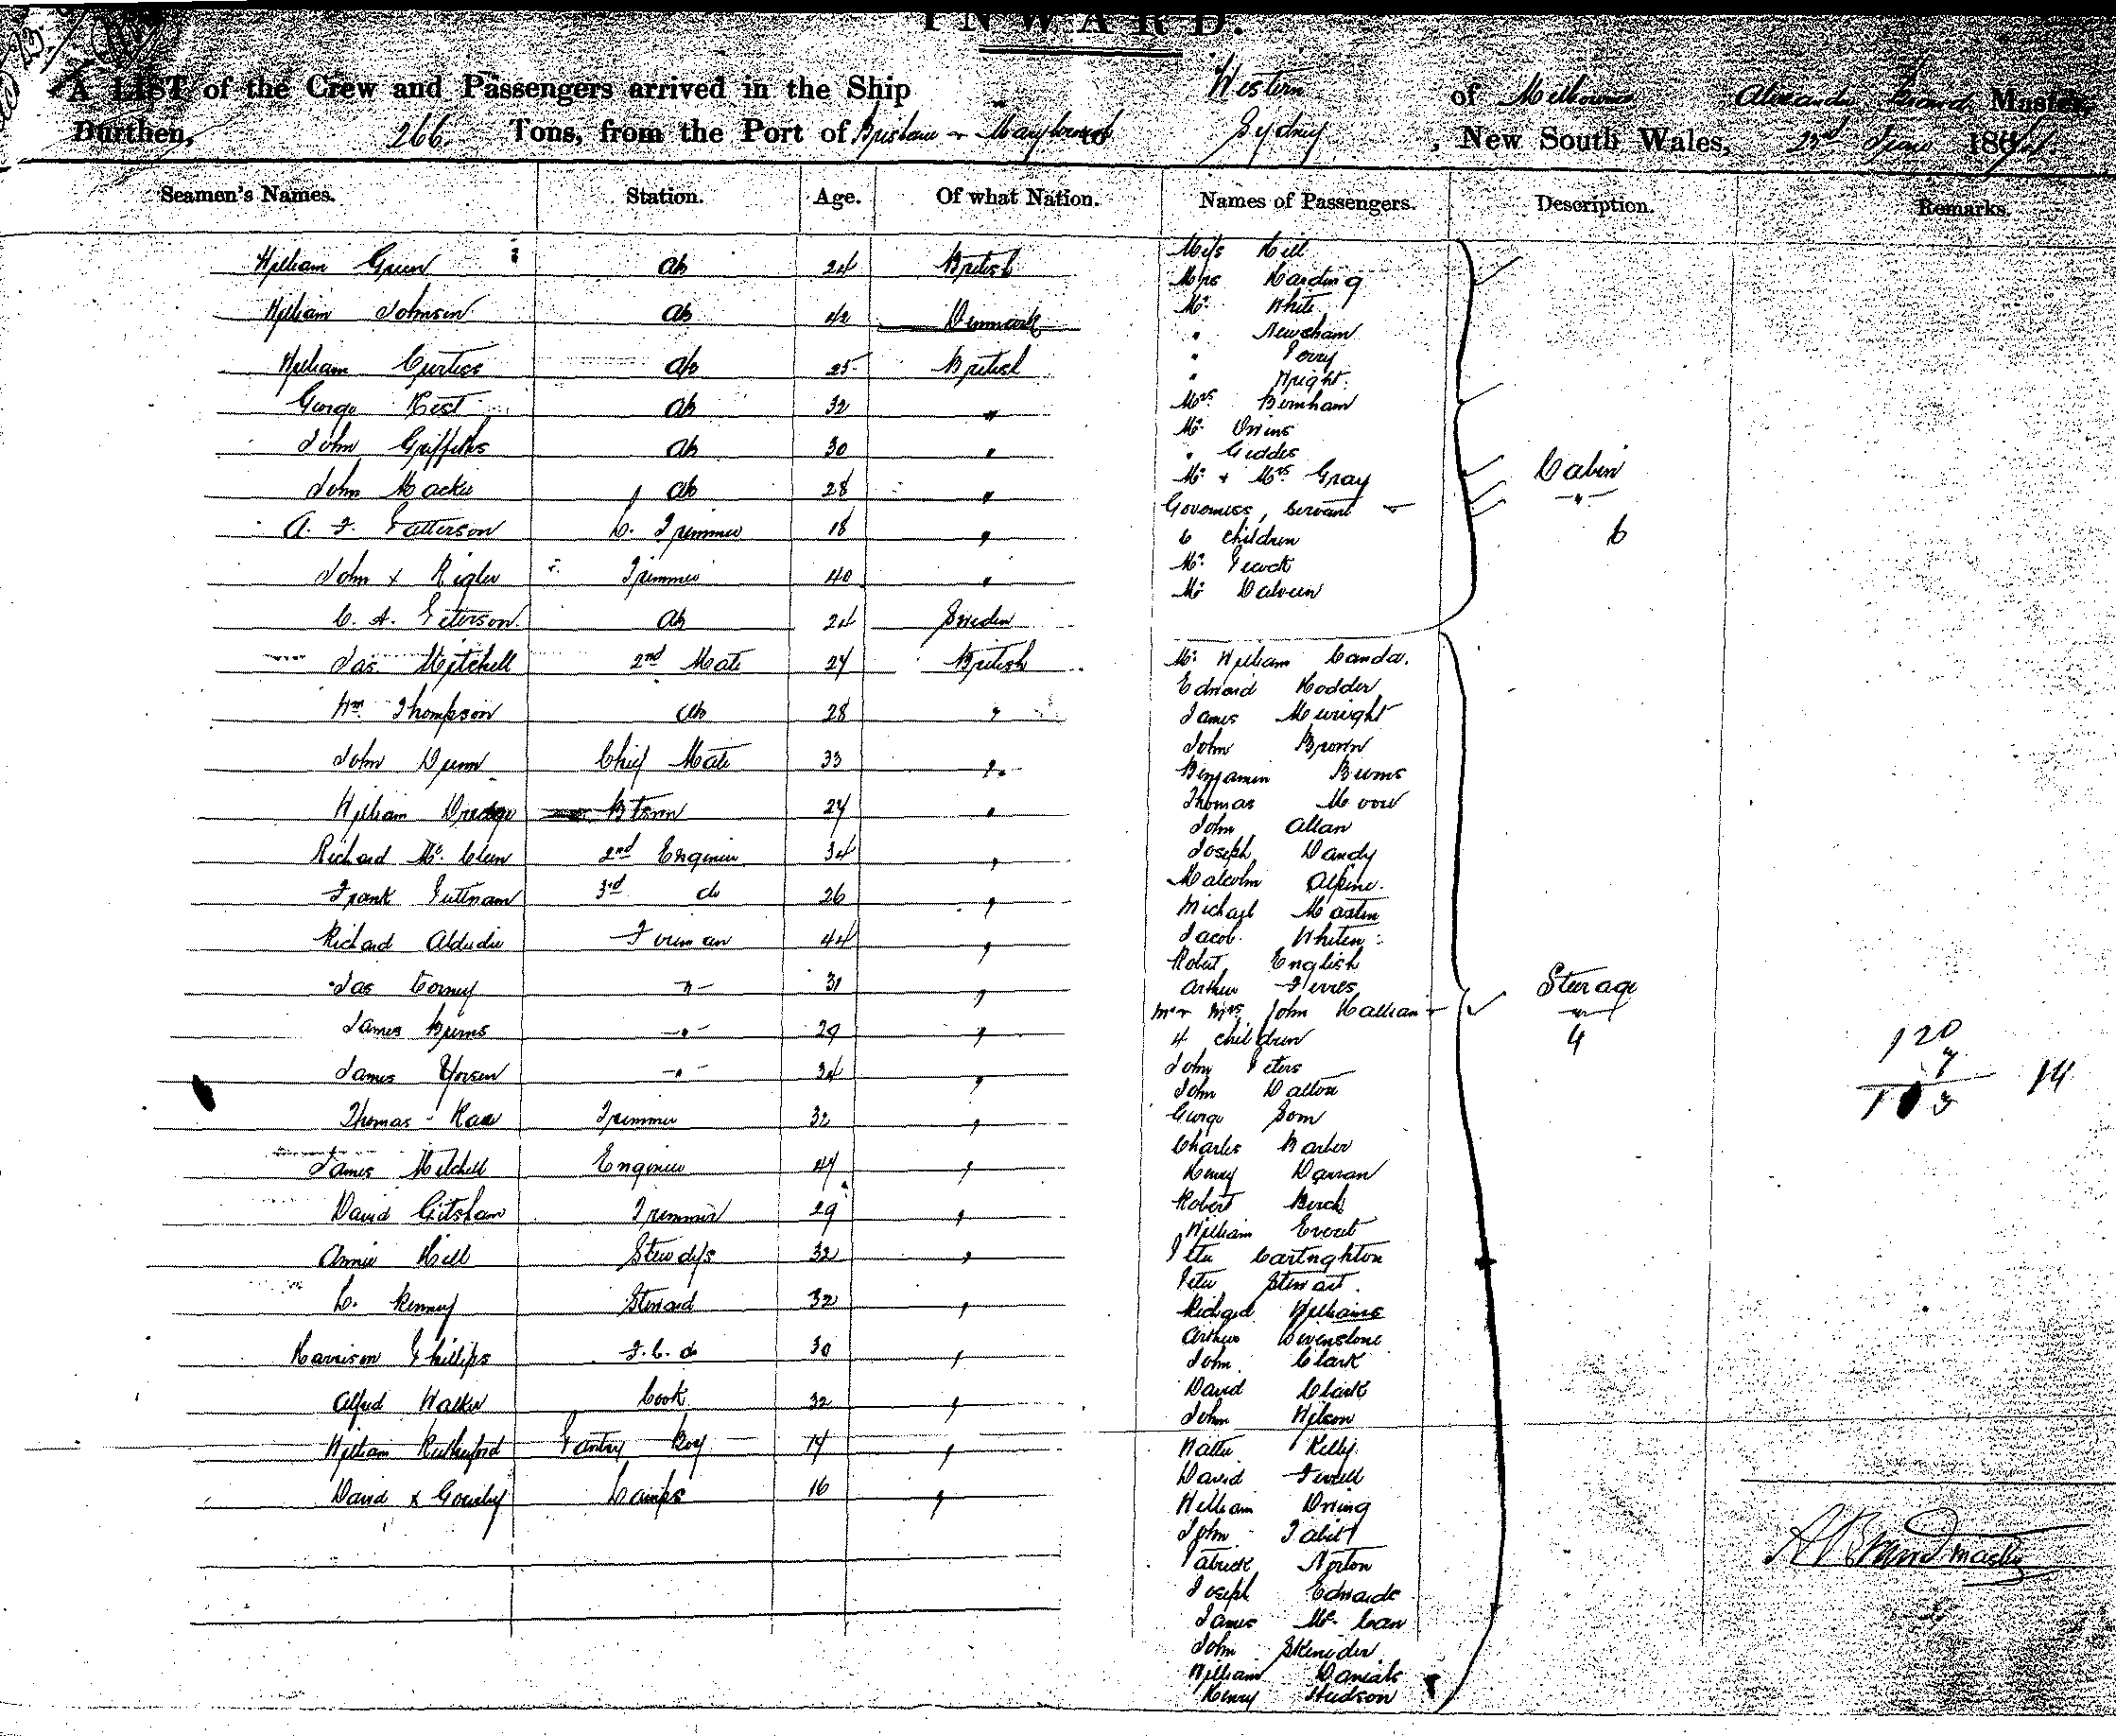 INWARD.
A LIST of the Crew and Passengers arrived in the Ship Western of Melbourne Alexander Brand Master,
Burthen, 266 Tons, from the Port of Brisbane & Maryborough to Sydney, New South Wales, 23rd June 186
Seamen's Names. Station. Age. Of what Nation. Names of Passengers. Description. Remarks.
William Green ab 24 British
William Johnson ab 42 Denmark
William Curtiss ab 25 British
George West ab 32 "
John Griffiths ab 30 "
John Mackie ab 28 "
A. F. Patterson C. Trimmer 18 "
John x Rigley Trimmer 40 "
C. A. Peterson ab 24 Sweden
Jas Mitchell 2nd Mate 27 British
Wm Thompson ab 28 "
John Dunn Chief Mate 33 "
William Dredge Btswn 27 "
Richard Mc 2nd Engineer 34 "
Frank Puttnam 3rd do 26 "
Richard Fireman 44 "
Jas Corney " 31 "
James Burns " 29 "
James " 34 "
Thomas Rae Trimmer 32 "
James Mitchell Engineer 47 "
David Gitsham Trimmer 29 "
Annie Hill Stewdss 32 "
C. Kenney Steward 32 "
Harrison Phillips F.C. do 30 "
Alfred Walker Cook 32 "
William Rutherford Pantry Boy 17 "
David x Gourley Lamps 16 "
Miss Hill
Mrs Harding
Mr White
" Newsham
" Perry
" Wright
Mrs Burnham
Mr Owens
" Geddes
Mr & Mrs Gray
Governess, Servant
6 children
Mr
Mr
Cabin
"
6
Mr William Canda.
Edward Hodder
James
John Brown
Benjamin Burns
Thomas Moore
John Allan
Joseph Dandy
Malcolm Alpine
Michael Martin
Jacob Whiten
Robert English
Arthur Ferres
Mr & Mrs John Hallian
4 children
John Peters
John Dalton
George Som
Charles Barber
Henry Darran
Robert Birch
William Everet
Peter Cartnghton
Peter Stewart
Richard Williams
Arthur Levenstone
John Clark
David Clark
John Wilson
Walter Kelly
David Ferrell
William Dring
John
Patrick Norton
Joseph Edwards
James Mc Lean
John Skneider
William Daniels
Henry Hudson
Steerage
"
4
120
7
14
A Brand master